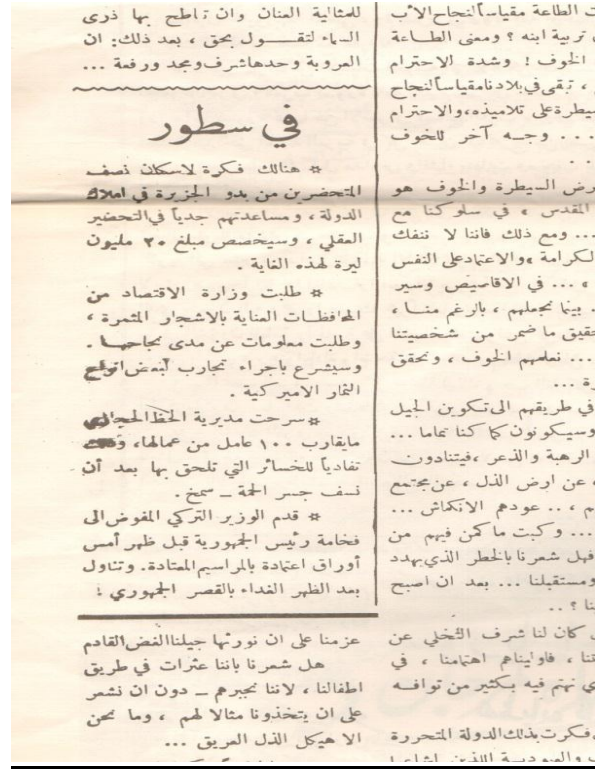 ت الطاعة مقياساً لنجاح الأب
تربية ابنه ؟ ومعنى الطاعة
الخوف ! وشدة الاحترام
، تبقى في بلادنا مقياساً لنجاح
سيطرة على تلاميذه، والاحترام
... وجه آخر للخوف
رض السيطرة والخوف هو
المقدس ، في سلوكنا مع
... ومع ذلك فاننا لا ننفك
لكرامة ، والاعتماد على النفس
، ... في الاقاصيص وسير
. بينما نجعلهم ، بالرغم منا ،
حقيق ما ضمر من شخصيتنا
... نعلمهم الخوف ، ونحقق
ة ...
في طريقهم الى تكوين الجيل
وسيكونون كما كنا تماما ...
الرهبة والذعر ، فيتنادون
، عن ارض الذل ، عن مجتمع
م ، .. عودهم الانكماش ...
... وكبت ما كمن فيهم من
فهل شعرنا بالخطر الذي يهدد
ومستقبلنا ... بعد ان اصبح
نا ؟ ..
كان لنا شرف التخلي عن
تنا ، فاوليناهم اهتمامنا ، في
ي نهتم فيه بكثير من توافه
فكرت بذلك الدولة المتحررة
للمثالية العنان وان تناطح بها ذرى
السماء لتقول بحق ، بعد ذلك : ان
العروبة وحدها شرف ومجد ورفعة ...
في سطور
* هنالك فكرة لاسكان نصف
المتحضرين من بدو الجزيرة في املاك
الدولة ، ومساعدتهم جدياً في التحضير
العقلي ، وسيخصص مبلغ ٢٠ مليون
ليرة لهذه الغاية .
* طلبت وزارة الاقتصاد من
المحافظات العناية بالاشجار المثمرة ،
وطلبت معلومات عن مدى نجاحها .
وسيشرع باجراء تجارب لبعض انواع
الثمار الاميركية .
* سرحت مديرية الخط الحجازي
مايقارب ١٠٠ عامل من عمالها، وذلك
تفادياً للخسائر التي تلحق بها بعد أن
نسف جسر الحمة – سمخ .
* قدم الوزير التركي المفوض الى
فخامة رئيس الجمهورية قبل ظهر أمس
أوراق اعتماده بالمراسيم المعتادة . وتناول
بعد الظهر الغداء بالقصر الجمهوري !
عزمنا على ان نورثها جيلنا الغض القادم
هل شعرنا باننا عثرات في طريق
اطفالنا ، لاننا نجبرهم – دون ان نشعر
على ان يتخذونا مثالا لهم ، وما نحن
الا هيكل الذل العريق ...